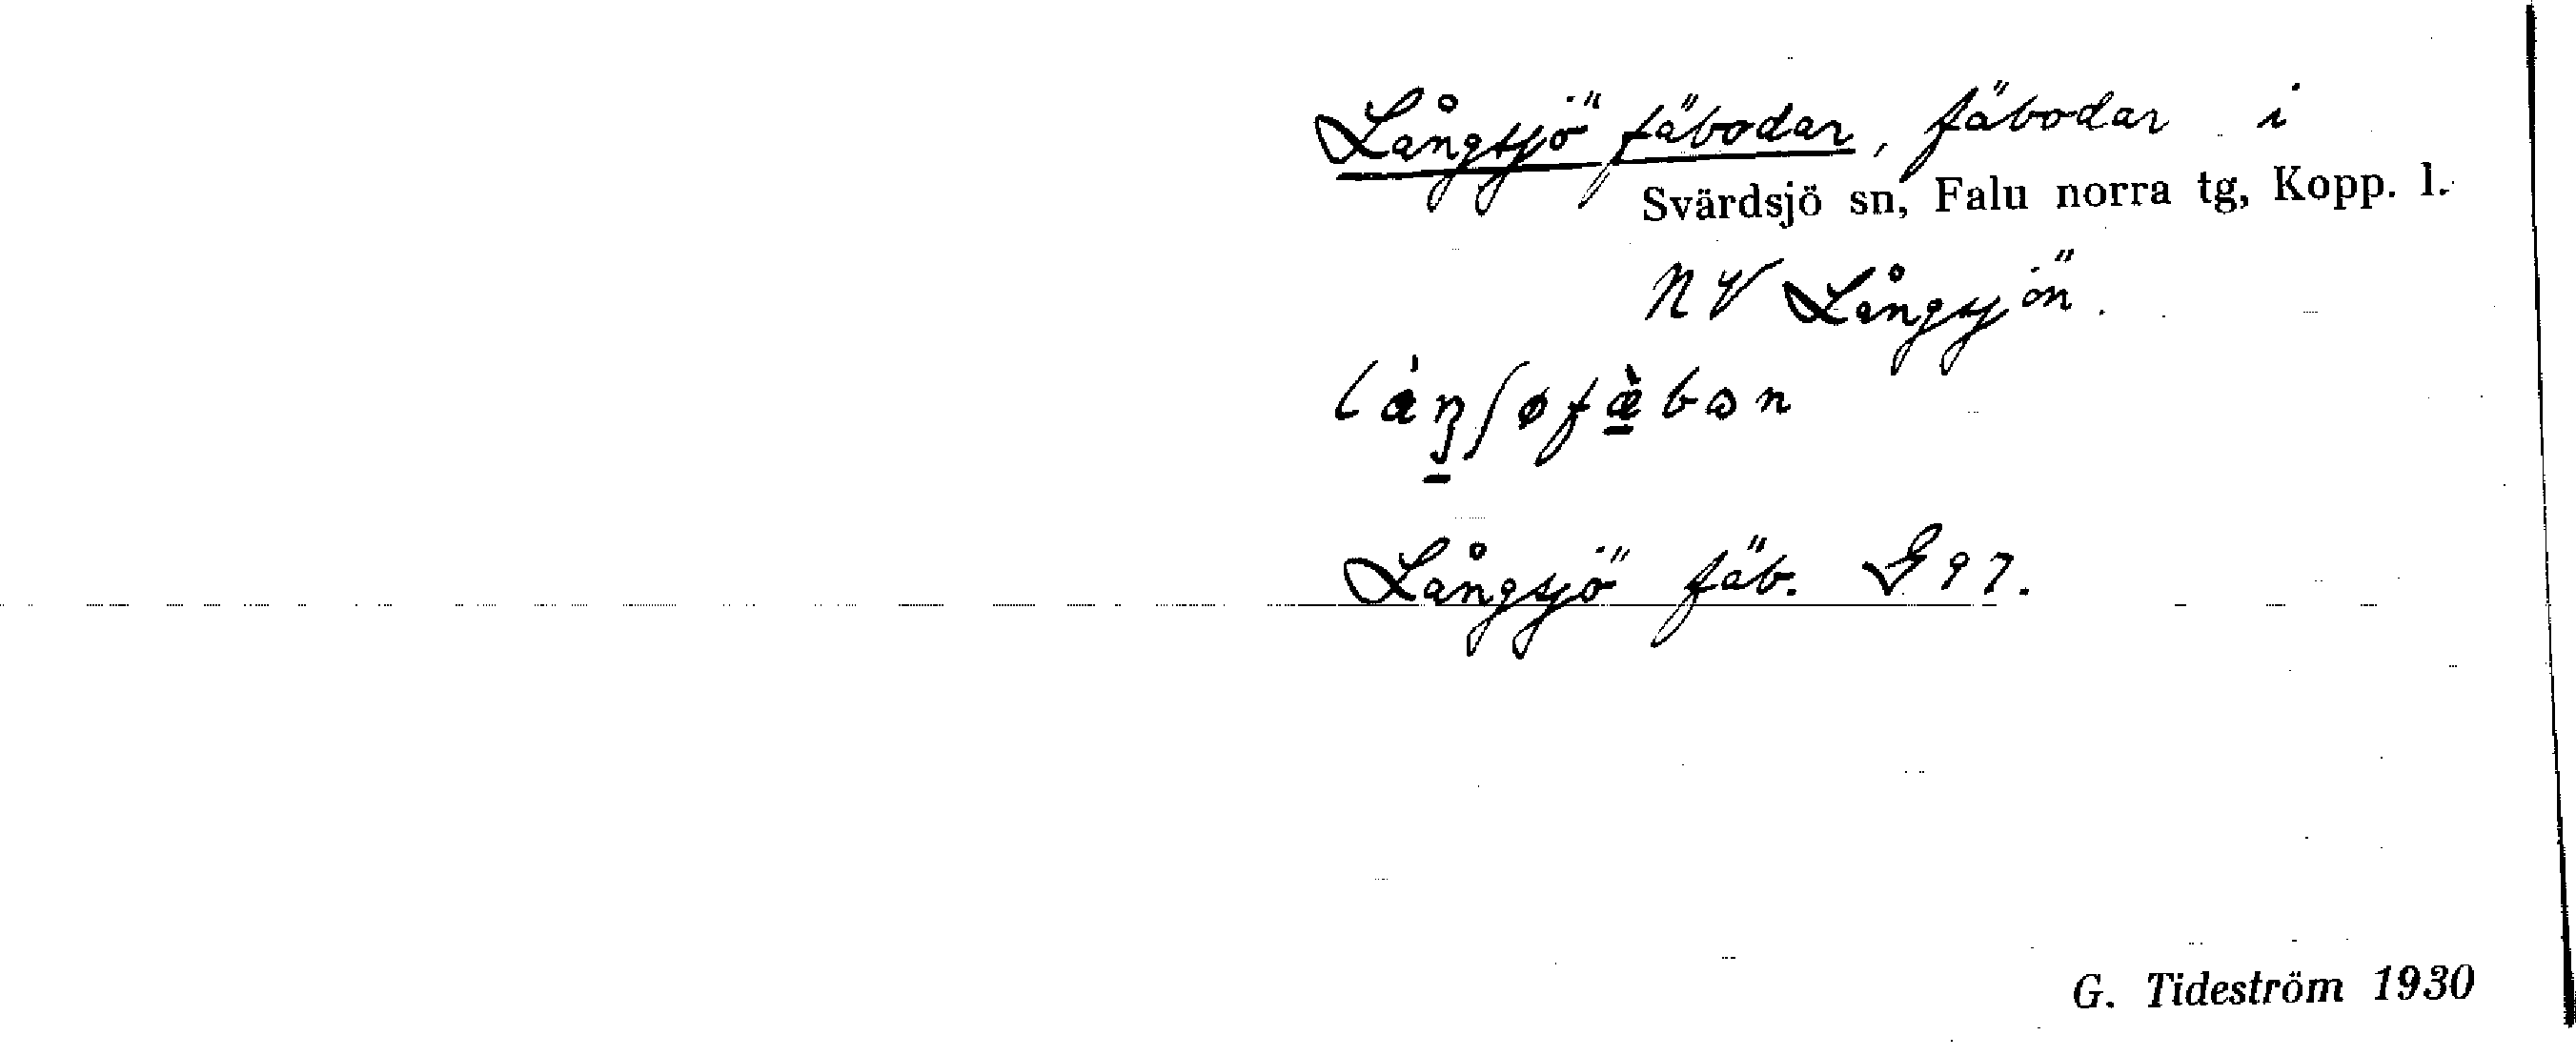 Långsjö fäbodar, fäbodar i
Svärdsjö sn, Falu norra tg, Kopp. l.
NV Långsjön.
Långsjö fäb. G97.
G. Tideström 1930